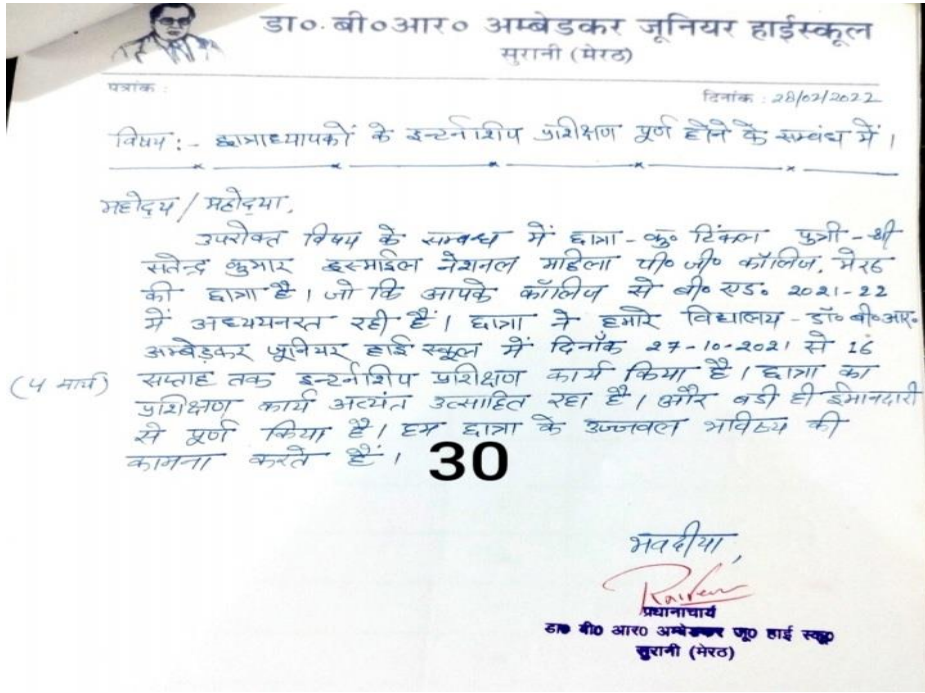 डा०. बी०आर० अम्बेडकर जूनियर हाईस्कूल
सुरानी (मेरठ)
पत्रांक :
दिनांक : 28/02/2022
विषय :- छात्राध्यापकों के इन्टर्नशिप प्रशिक्षण पूर्ण होने के सम्बंध में ।
महोदय / महोदया,
उपरोक्त विषय के सम्बन्ध में छात्रा - कु० टिंकल पुत्री - श्री
सतेन्द्र कुमार इस्माईल नेशनल महिला पी० जी० कॉलिज, मेरठ
की छात्रा है । जो कि आपके कॉलिज से बी० एड० 2021-22
में अध्ययनरत रही हैं । छात्रा ने हमारे विद्यालय - डॉ० बी०आर०
अम्बेड़कर जूनियर हाई स्कूल में दिनाँक 27-10-2021 से 16
(5 मार्च) सप्ताह तक इन्टर्नशिप प्रशिक्षण कार्य किया है । छात्रा का
प्रशिक्षण कार्य अत्यंत उत्साहित रहा है । और बडी ही ईमानदारी
से पूर्ण किया है । हम छात्रा के उज्जवल भविष्य की
कामना करते हैं ।
30
भवदीया,
प्रधानाचार्य
डा० बी० आर० अम्बेडकर जू० हाई स्कूल
सुरानी (मेरठ)